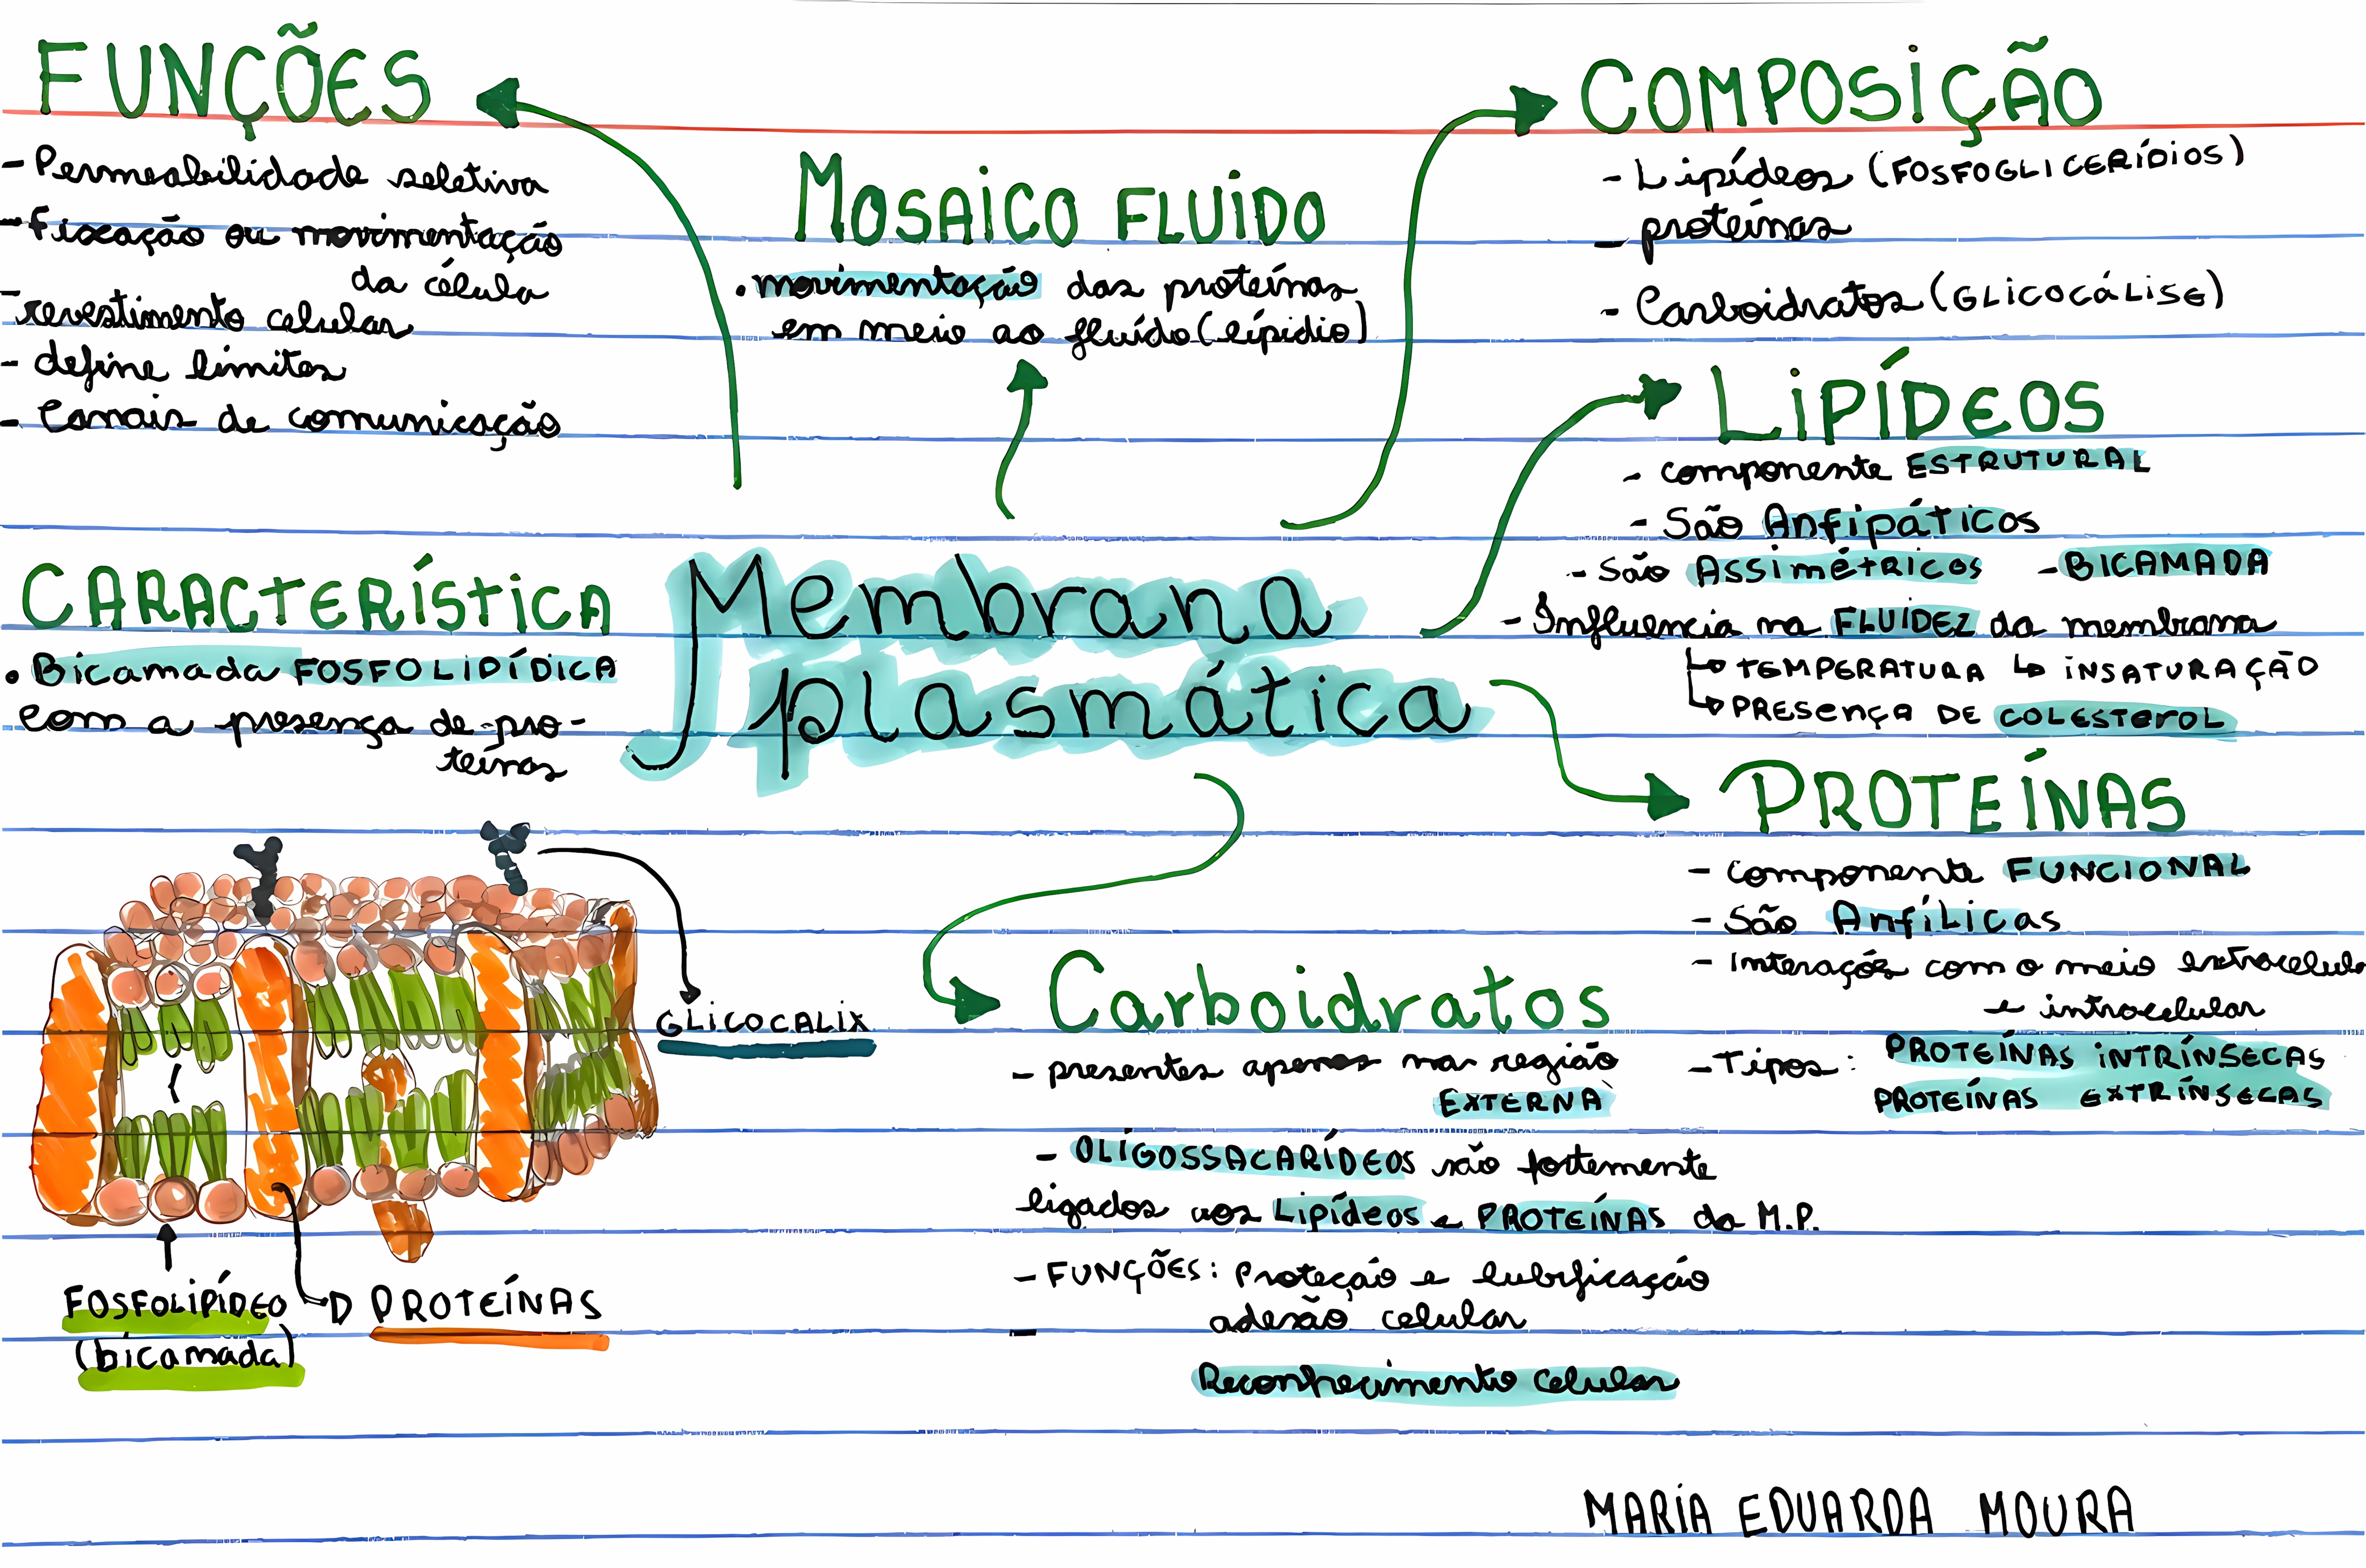 FUNÇÕES
- Permeabilidade seletiva
- Fixação ou movimentação
da célula
- revestimento celular
- define limites
- Canais de comunicação
MOSAICO FLUIDO
• movimentação das proteínas
em meio ao fluído (lípidio)
COMPOSIÇÃO
- Lipídeos (FOSFOGLICERÍDIOS)
- proteínas
- Carboidratos (GLICOCÁLISE)
LIPÍDEOS
- componente ESTRUTURAL
- São Anfipáticos
- São Assimétricos - BICAMADA
- Influencia na FLUIDEZ da membrana
↳ TEMPERATURA ↳ INSATURAÇÃO
↳ PRESENÇA DE COLESTEROL
CARACTERÍSTICA
• Bicamada FOSFOLIPÍDICA
com a presença de pro-
teínas
Membrana
plasmática
PROTEÍNAS
- componente FUNCIONAL
- São Anfílicas
- Interação com o meio extracelula
e intracelular
- Tipos: PROTEÍNAS INTRÍNSECAS
PROTEÍNAS EXTRÍNSECAS
GLICOCALIX
FOSFOLIPÍDEO
(bicamada)
PROTEÍNAS
Carboidratos
- presentes apenas na região
EXTERNA
- OLIGOSSACARÍDEOS são fortemente
ligados aos Lipídeos e PROTEÍNAS da M.P.
- FUNÇÕES: Proteção e lubrificação
- adesão celular
Reconhecimento celular
MARIA EDUARDA MOURA